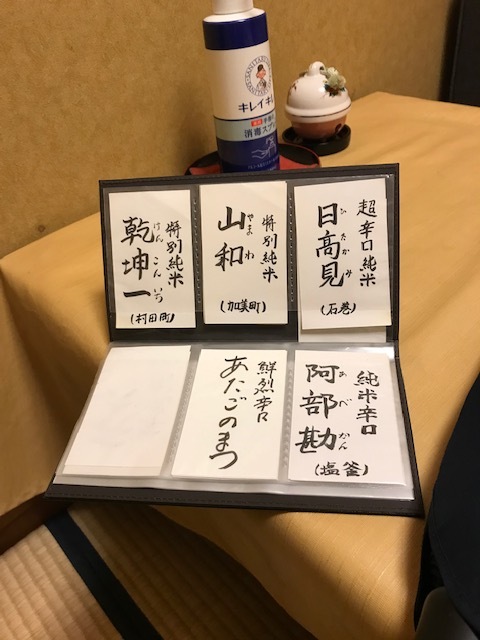 キレイキレイ
消毒スプレー
超辛口純米
日高見
ひたかみ
(石巻)
特別純米
山和
やまわ
(加美町)
特別純米
乾坤一
けんこんいち
(村田町)
純米辛口
阿部勘
あべかん
(塩釜)
鮮烈辛口
あたごのまつ